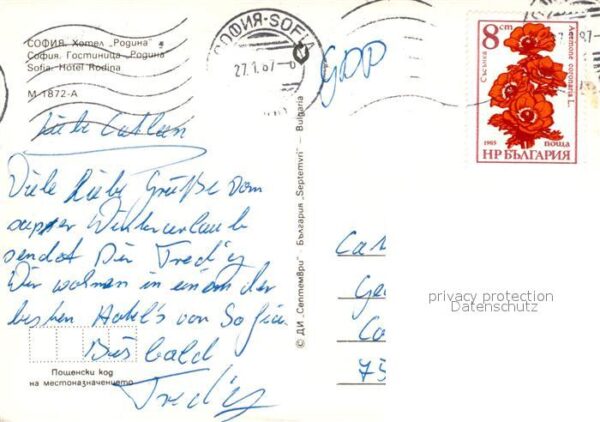 СОФИЯ. Хотел „Родина"
София. Гостиница „Родина"
Sofia. Hotel Rodina
М 1872-А
СОФИЯ-SOFIA
27.1.87
GDP
8 ст
Съсънка
Anemone coronaria L.
1985 поща
НР БЪЛГАРИЯ
Liebe
Viele liebe Grüße vom
super Winterurlaub
sendet Dir Fred'y
Wir wohnen in einem der
besten Hotel's von Sofia.
Bis bald
Fred'y
Пощенски код
на местоназначението
© ДИ „Септември" · България „Septemvri" - Bulgaria
privacy protection
Datenschutz
Ca
Ge
Co
75